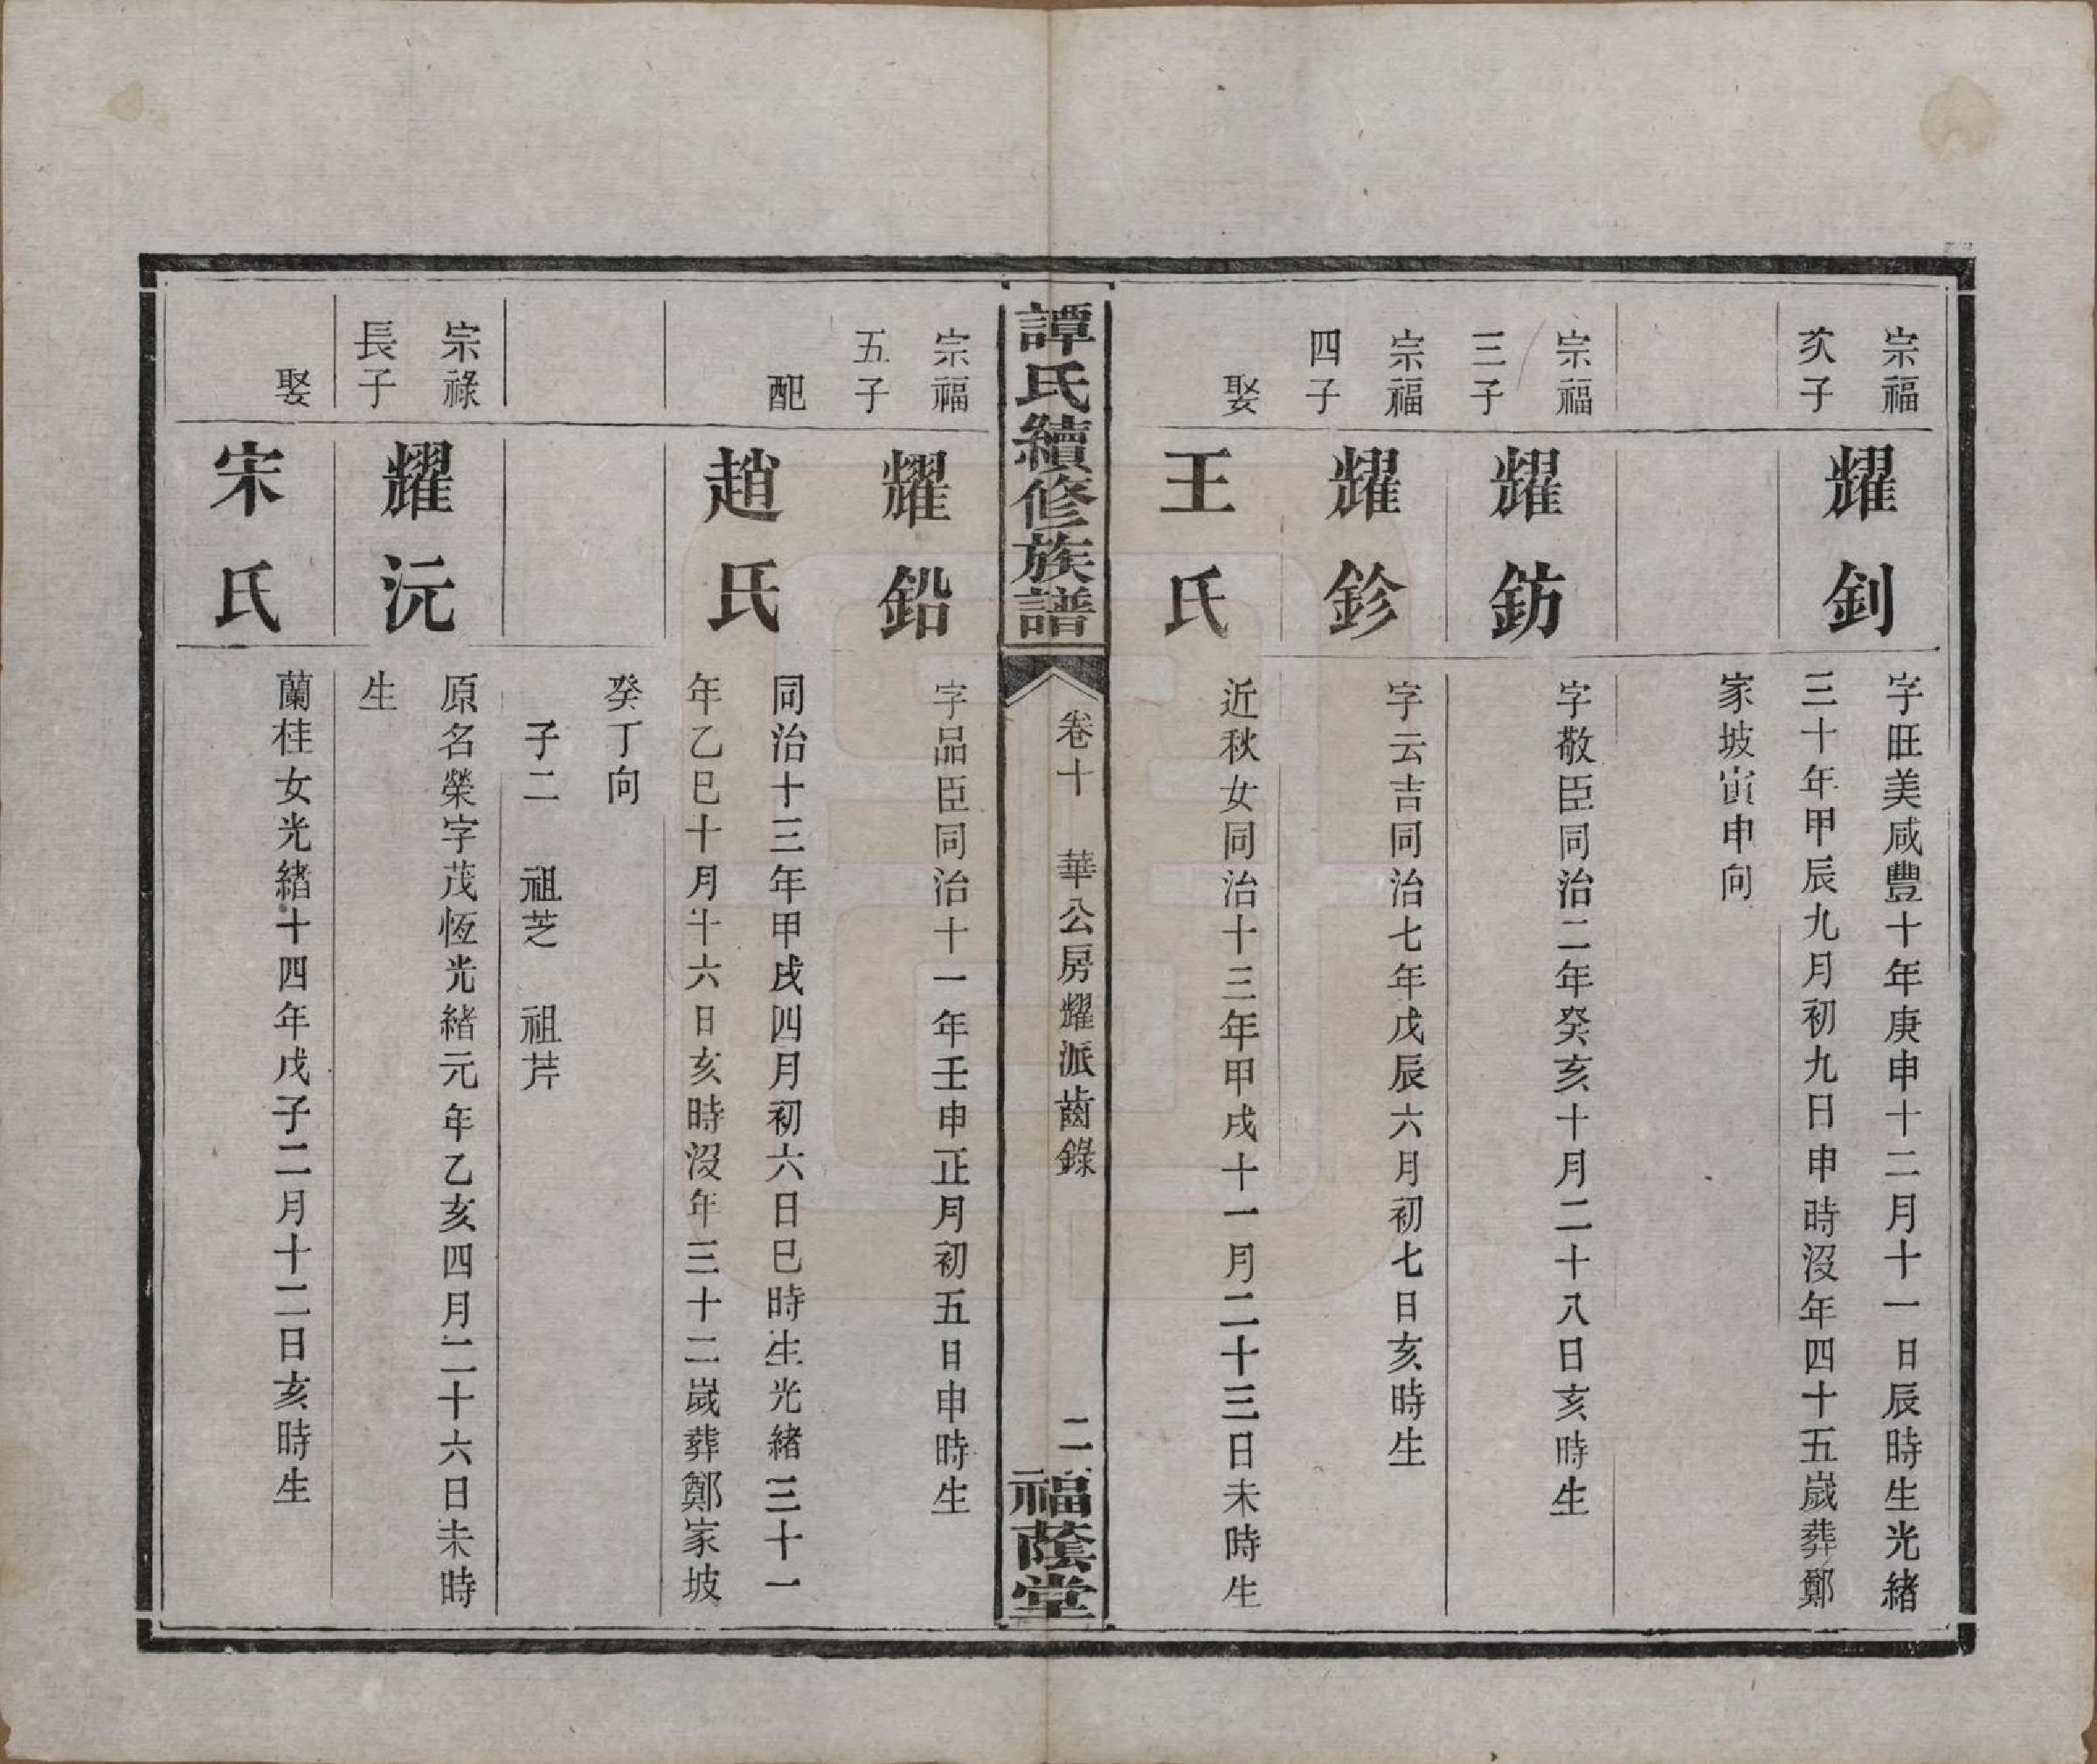 宗福
次子
耀釗
字旺美咸豐十年庚申十二月十一日辰時生光緒
三十年甲辰九月初九日申時沒年四十五歲葬鄭
家坡寅申向
宗福
三子
耀鈁
字敬臣同治二年癸亥十月二十八日亥時生
宗福
四子
耀鉁
字云吉同治七年戊辰六月初七日亥時生
娶
王氏
近秋女同治十三年甲戌十一月二十三日未時生
譚氏續修族譜
卷十 華公房耀派齒錄
二
福蔭堂
宗福
五子
耀鉛
字品臣同治十一年壬申正月初五日申時生
配
趙氏
同治十三年甲戌四月初六日巳時生光緒三十一
年乙巳十月十六日亥時沒年三十二歲葬鄭家坡
癸丁向
子二 祖芝 祖芹
宗祿
長子
耀沅
原名榮字茂恆光緒元年乙亥四月二十六日未時
生
娶
宋氏
蘭桂女光緒十四年戊子二月十二日亥時生